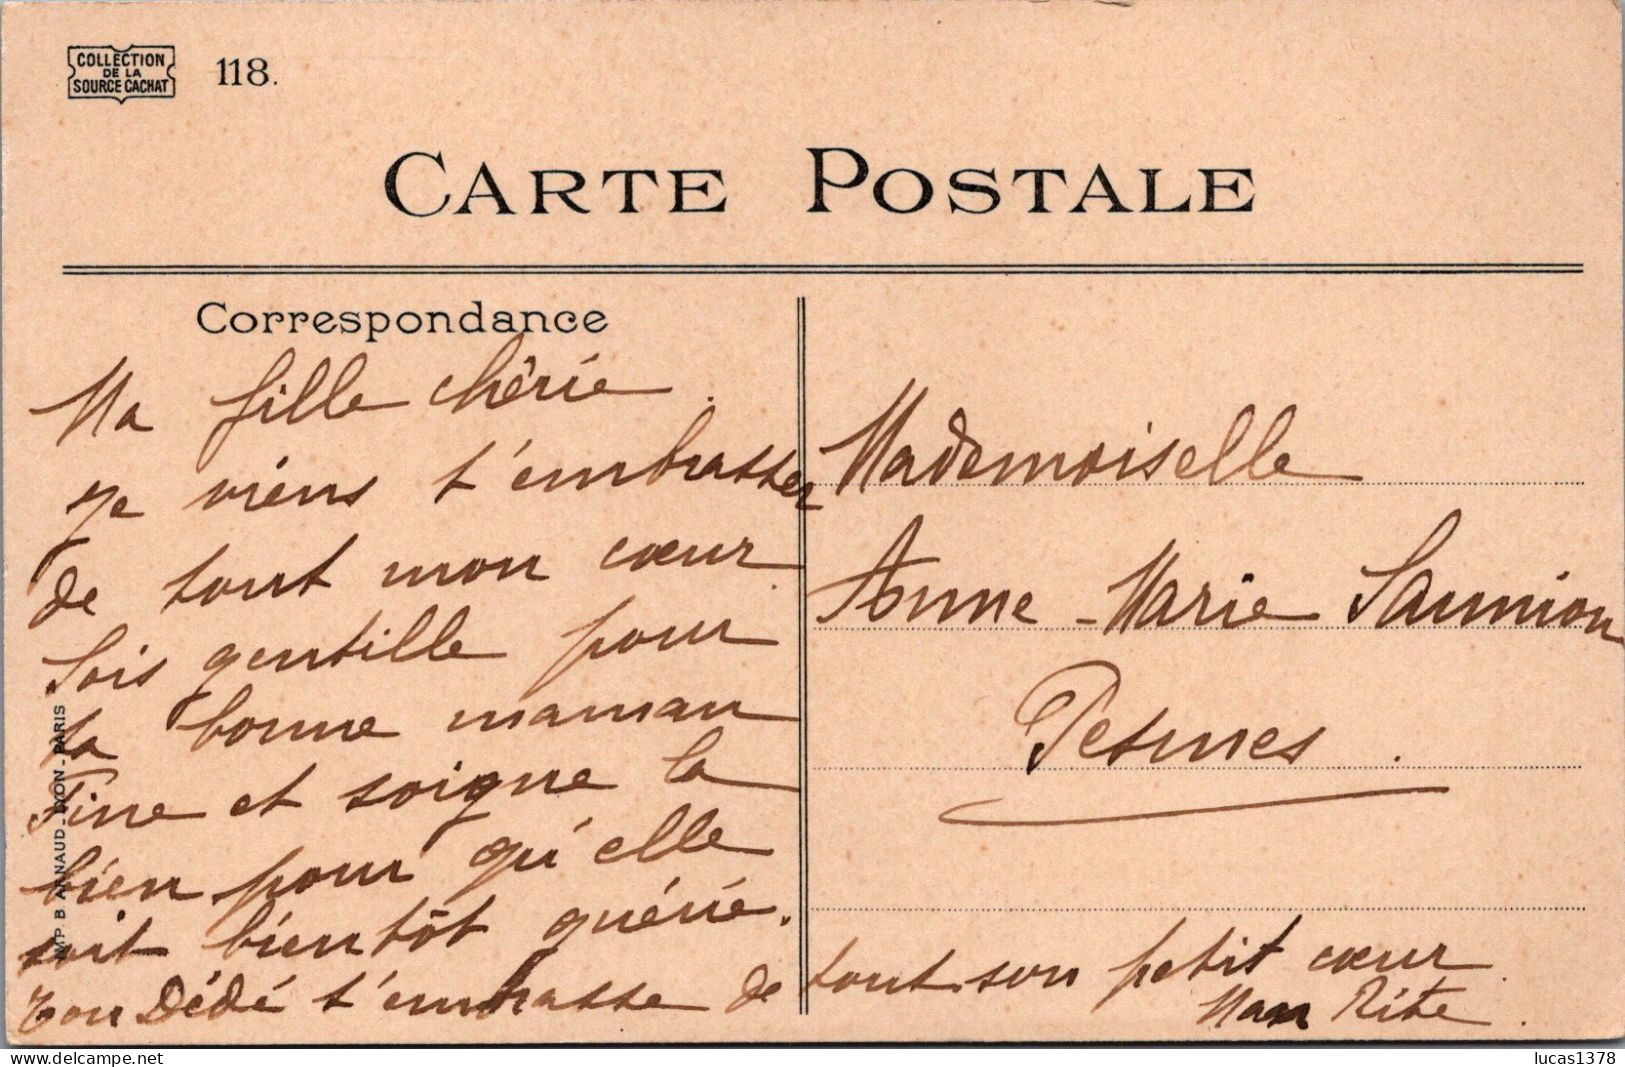 COLLECTION
DE LA
SOURCE CACHAT
118.
CARTE POSTALE
Correspondance
Ma fille chérie.
Je viens t'embrasser
de tout mon cœur
Sois gentille pour
ta bonne maman
Fine et soigne la
bien pour qu'elle
soit bientôt guérie.
Ton Dédé t'embrasse de tout son petit cœur
Man Rite.
Mademoiselle
Anne-Marie Saunion
Pesmes.
IMP. B. ARNAUD-LYON-PARIS
lucas1378